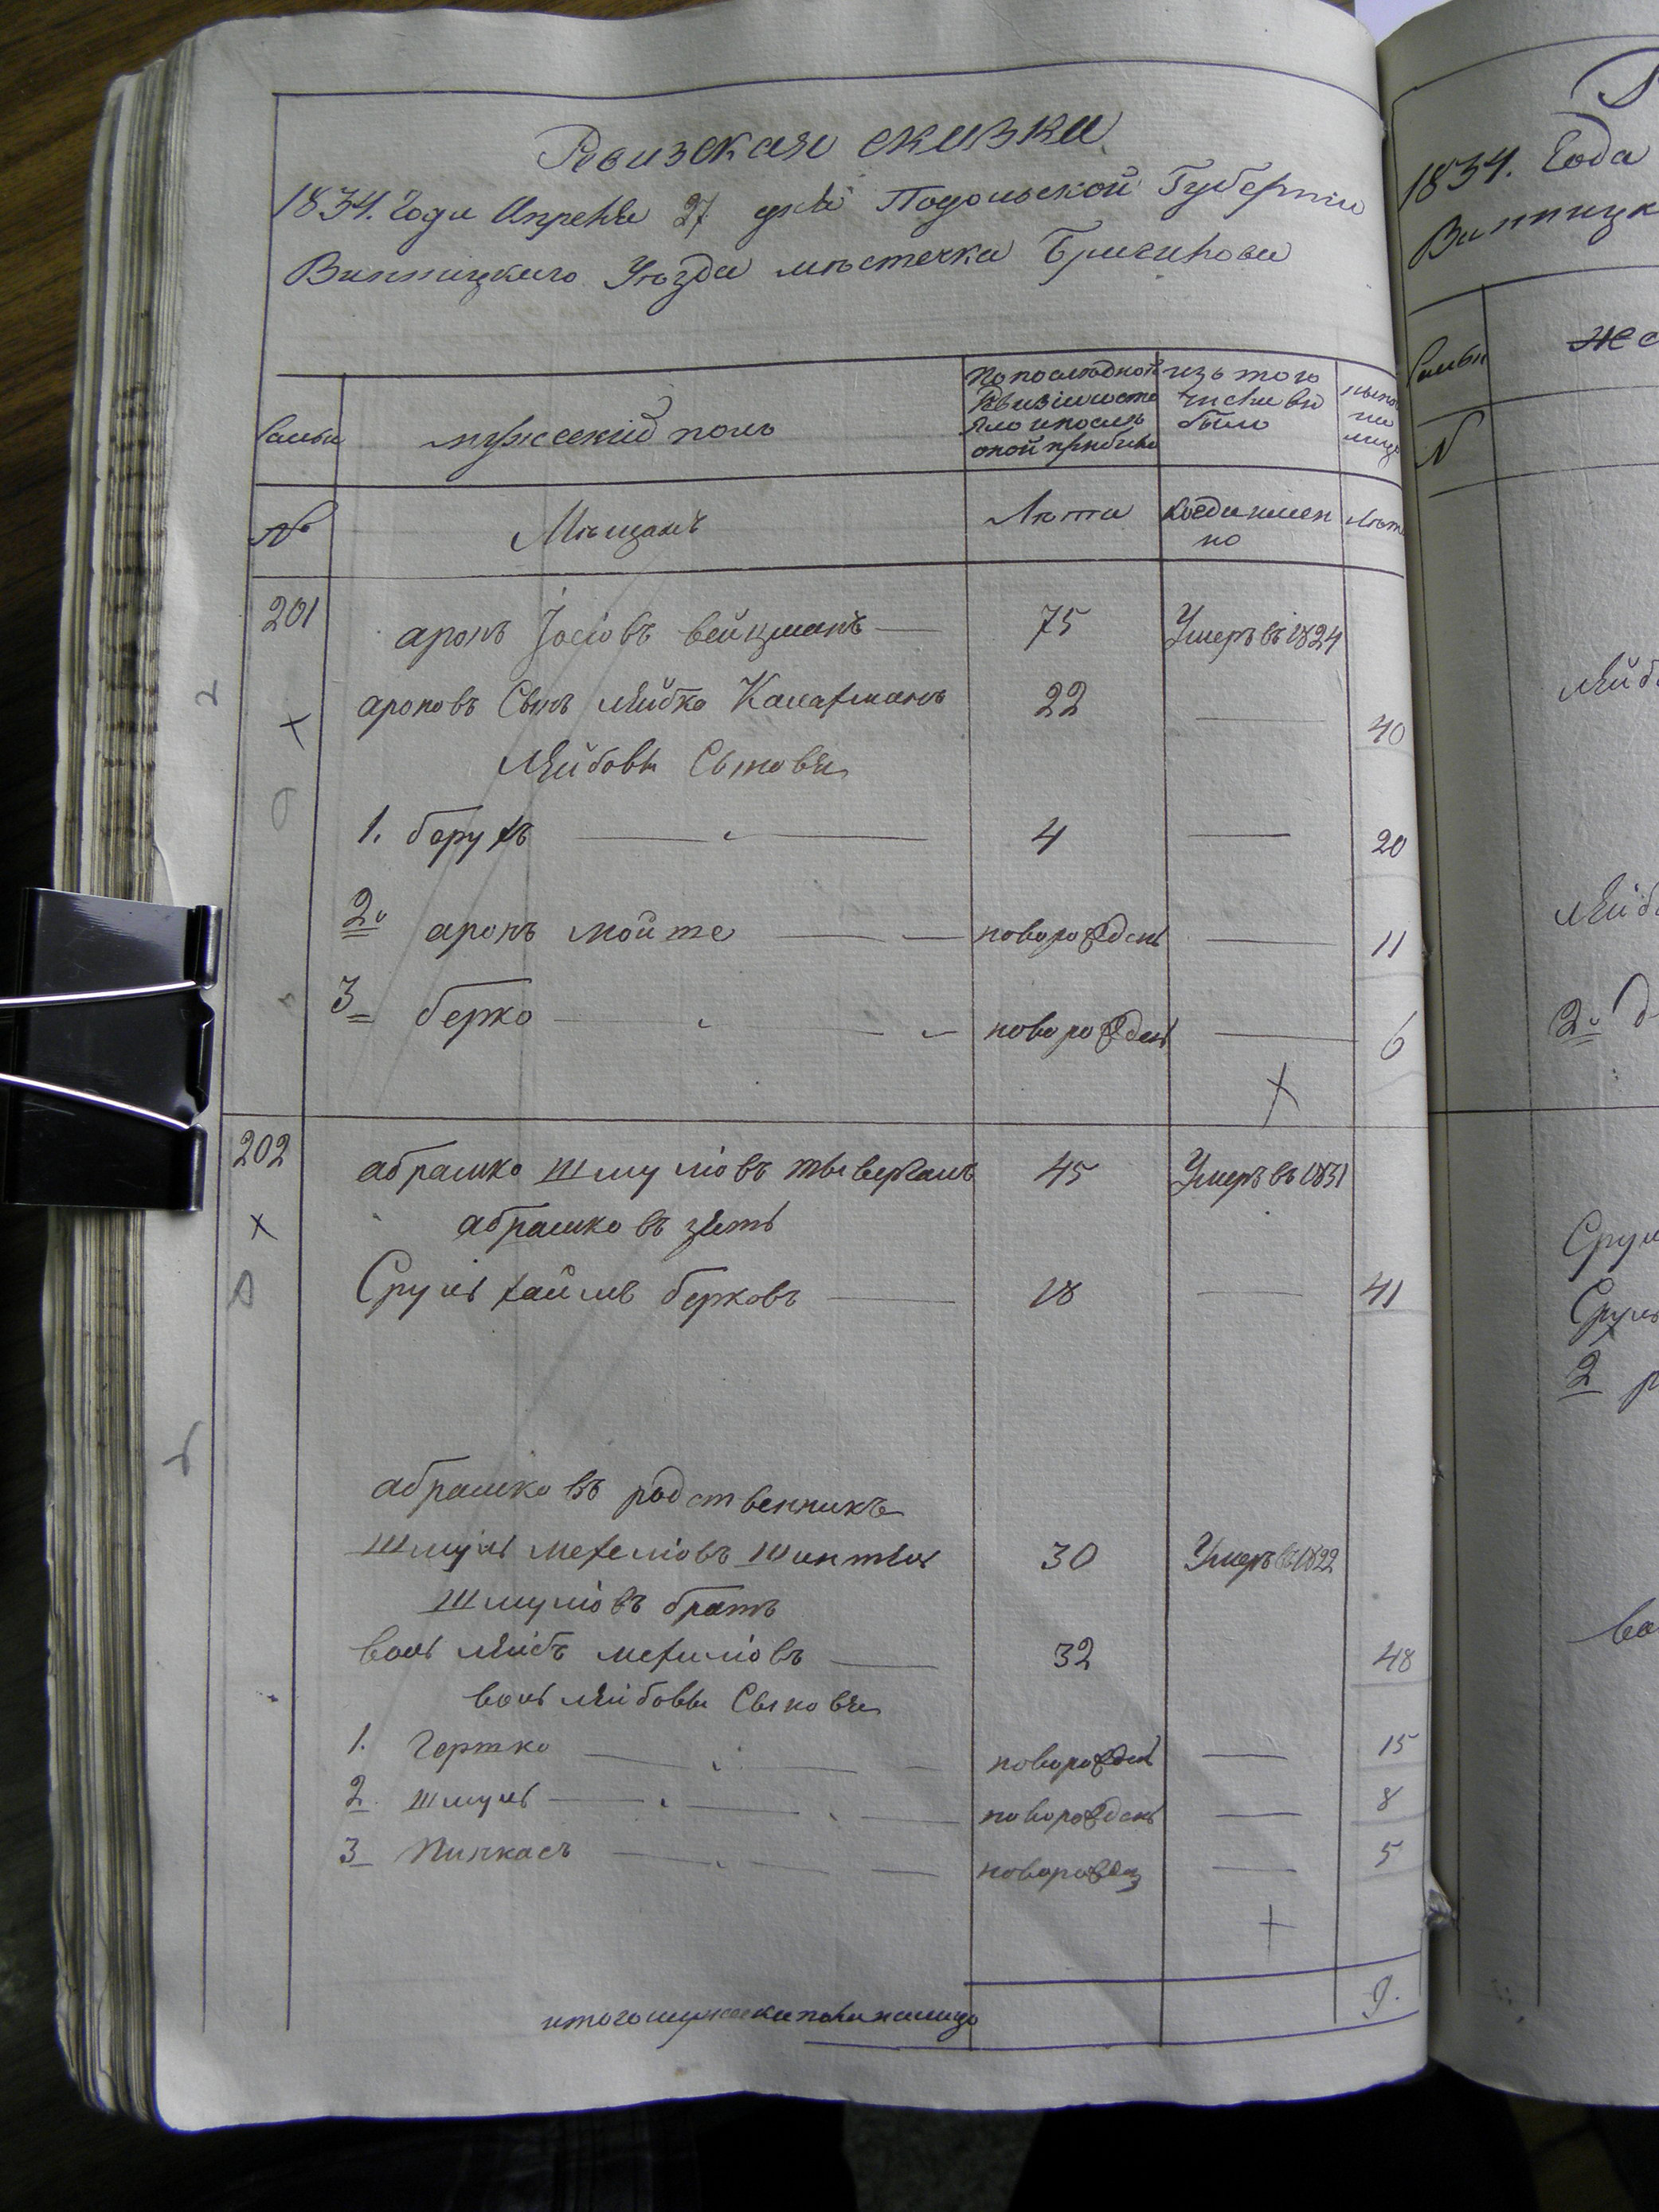 Ревизская сказка
1834. Года Апреля 27 дня Подольской Губернии
Винницкого Уѣзда мѣстечка Браилова
Семьи
мужескій полъ
По послѣдной
Ревизіи состо
яло и послѣ
оной прибыло
изъ того
числа вы
было
ныне
на
лицо
№
Мѣщанъ
Лѣта
Когда имен
но
Лѣта
201
аронъ Іосіовъ вейцманъ
75
Умеръ въ 1824
ароновъ Сынъ Лейбко
22
40
Лейбовы Сыновья
1. Борухъ
4
20
2. аронъ мойше
новорожденъ
11
3 берко
новорожденъ
6
202
абрашко Шмуліовъ
45
Умеръ въ 1831
абрашковъ зять
Сруль хаимъ берковъ
18
41
абрашковъ родственникъ
Шмуль мехеліовъ
30
Умеръ въ 1822
Шмуліовъ братъ
волъ Лейбъ мехиліовъ
32
48
волъ Лейбовы Сыновья
1. Гершко
новорожден
15
2. Шмуль
новорожденъ
8
3 Пинкасъ
новорожд
5
итого мужеска пола налицо
9.
1834. Года
Винницк
Семьи
же
№
Лейб
Лейб
2.
Сруль
Сруль
2
во